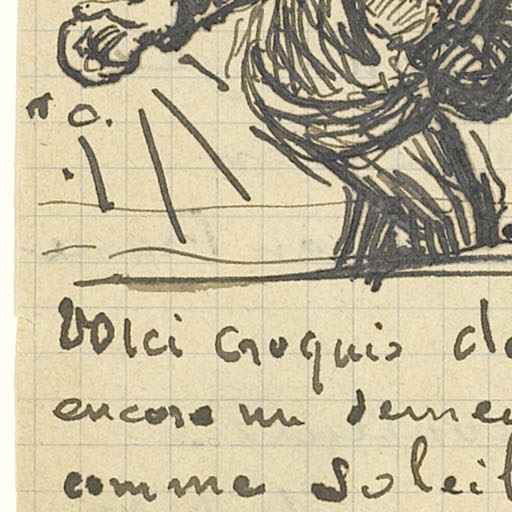 Voici croquis de
encore un semeu
comme Soleil